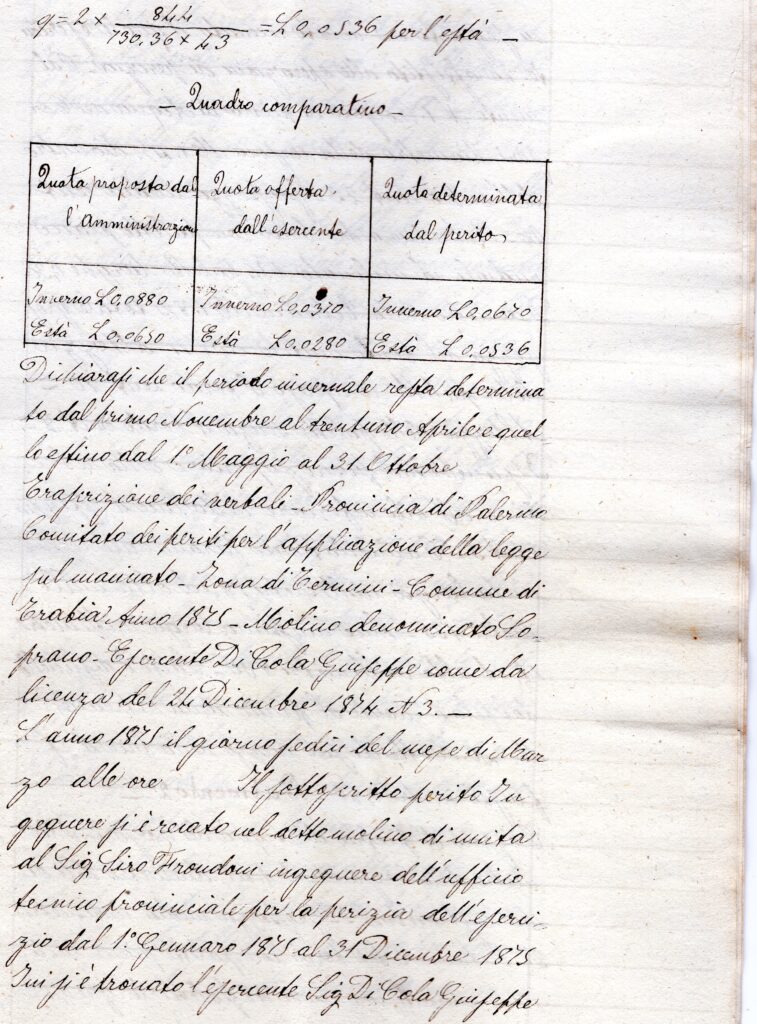 q = 2 × 844 / 730,36 × 43 = L 0,0536 per l'està —
— Quadro comparativo —
Quota proposta dal Quota offerta Quota determinata
l'amministrazione dall'esercente dal perito
Inverno L 0,0880 Inverno L 0,0370 Inverno L 0,0670
Està L 0,0650 Està L 0,0280 Està L 0,0536
Dichiarasi che il periodo invernale resta determina
to dal primo Novembre al trentuno Aprile e quel-
lo estivo dal 1° Maggio al 31 Ottobre
Trascrizione dei verbali - Provincia di Palermo
Comitato dei periti per l'applicazione della legge
sul macinato - Zona di Termini - Comune di
Trabia Anno 1875 - Molino denominato So-
prano - Esercente Di Cola Giuseppe come da
licenza del 24 Dicembre 1874 N 3. —
L'anno 1875 il giorno sedici del mese di Mar
zo alle ore Il sottoscritto perito In
gegnere si è recato nel detto molino di unita
al Sig Siro Frondoni ingegnere dell'ufficio
tecnico provinciale per la perizia dell'eserci-
zio dal 1° Gennaro 1875 al 31 Dicembre 1875
Ivi si è trovato l'esercente Sig Di Cola Giuseppe